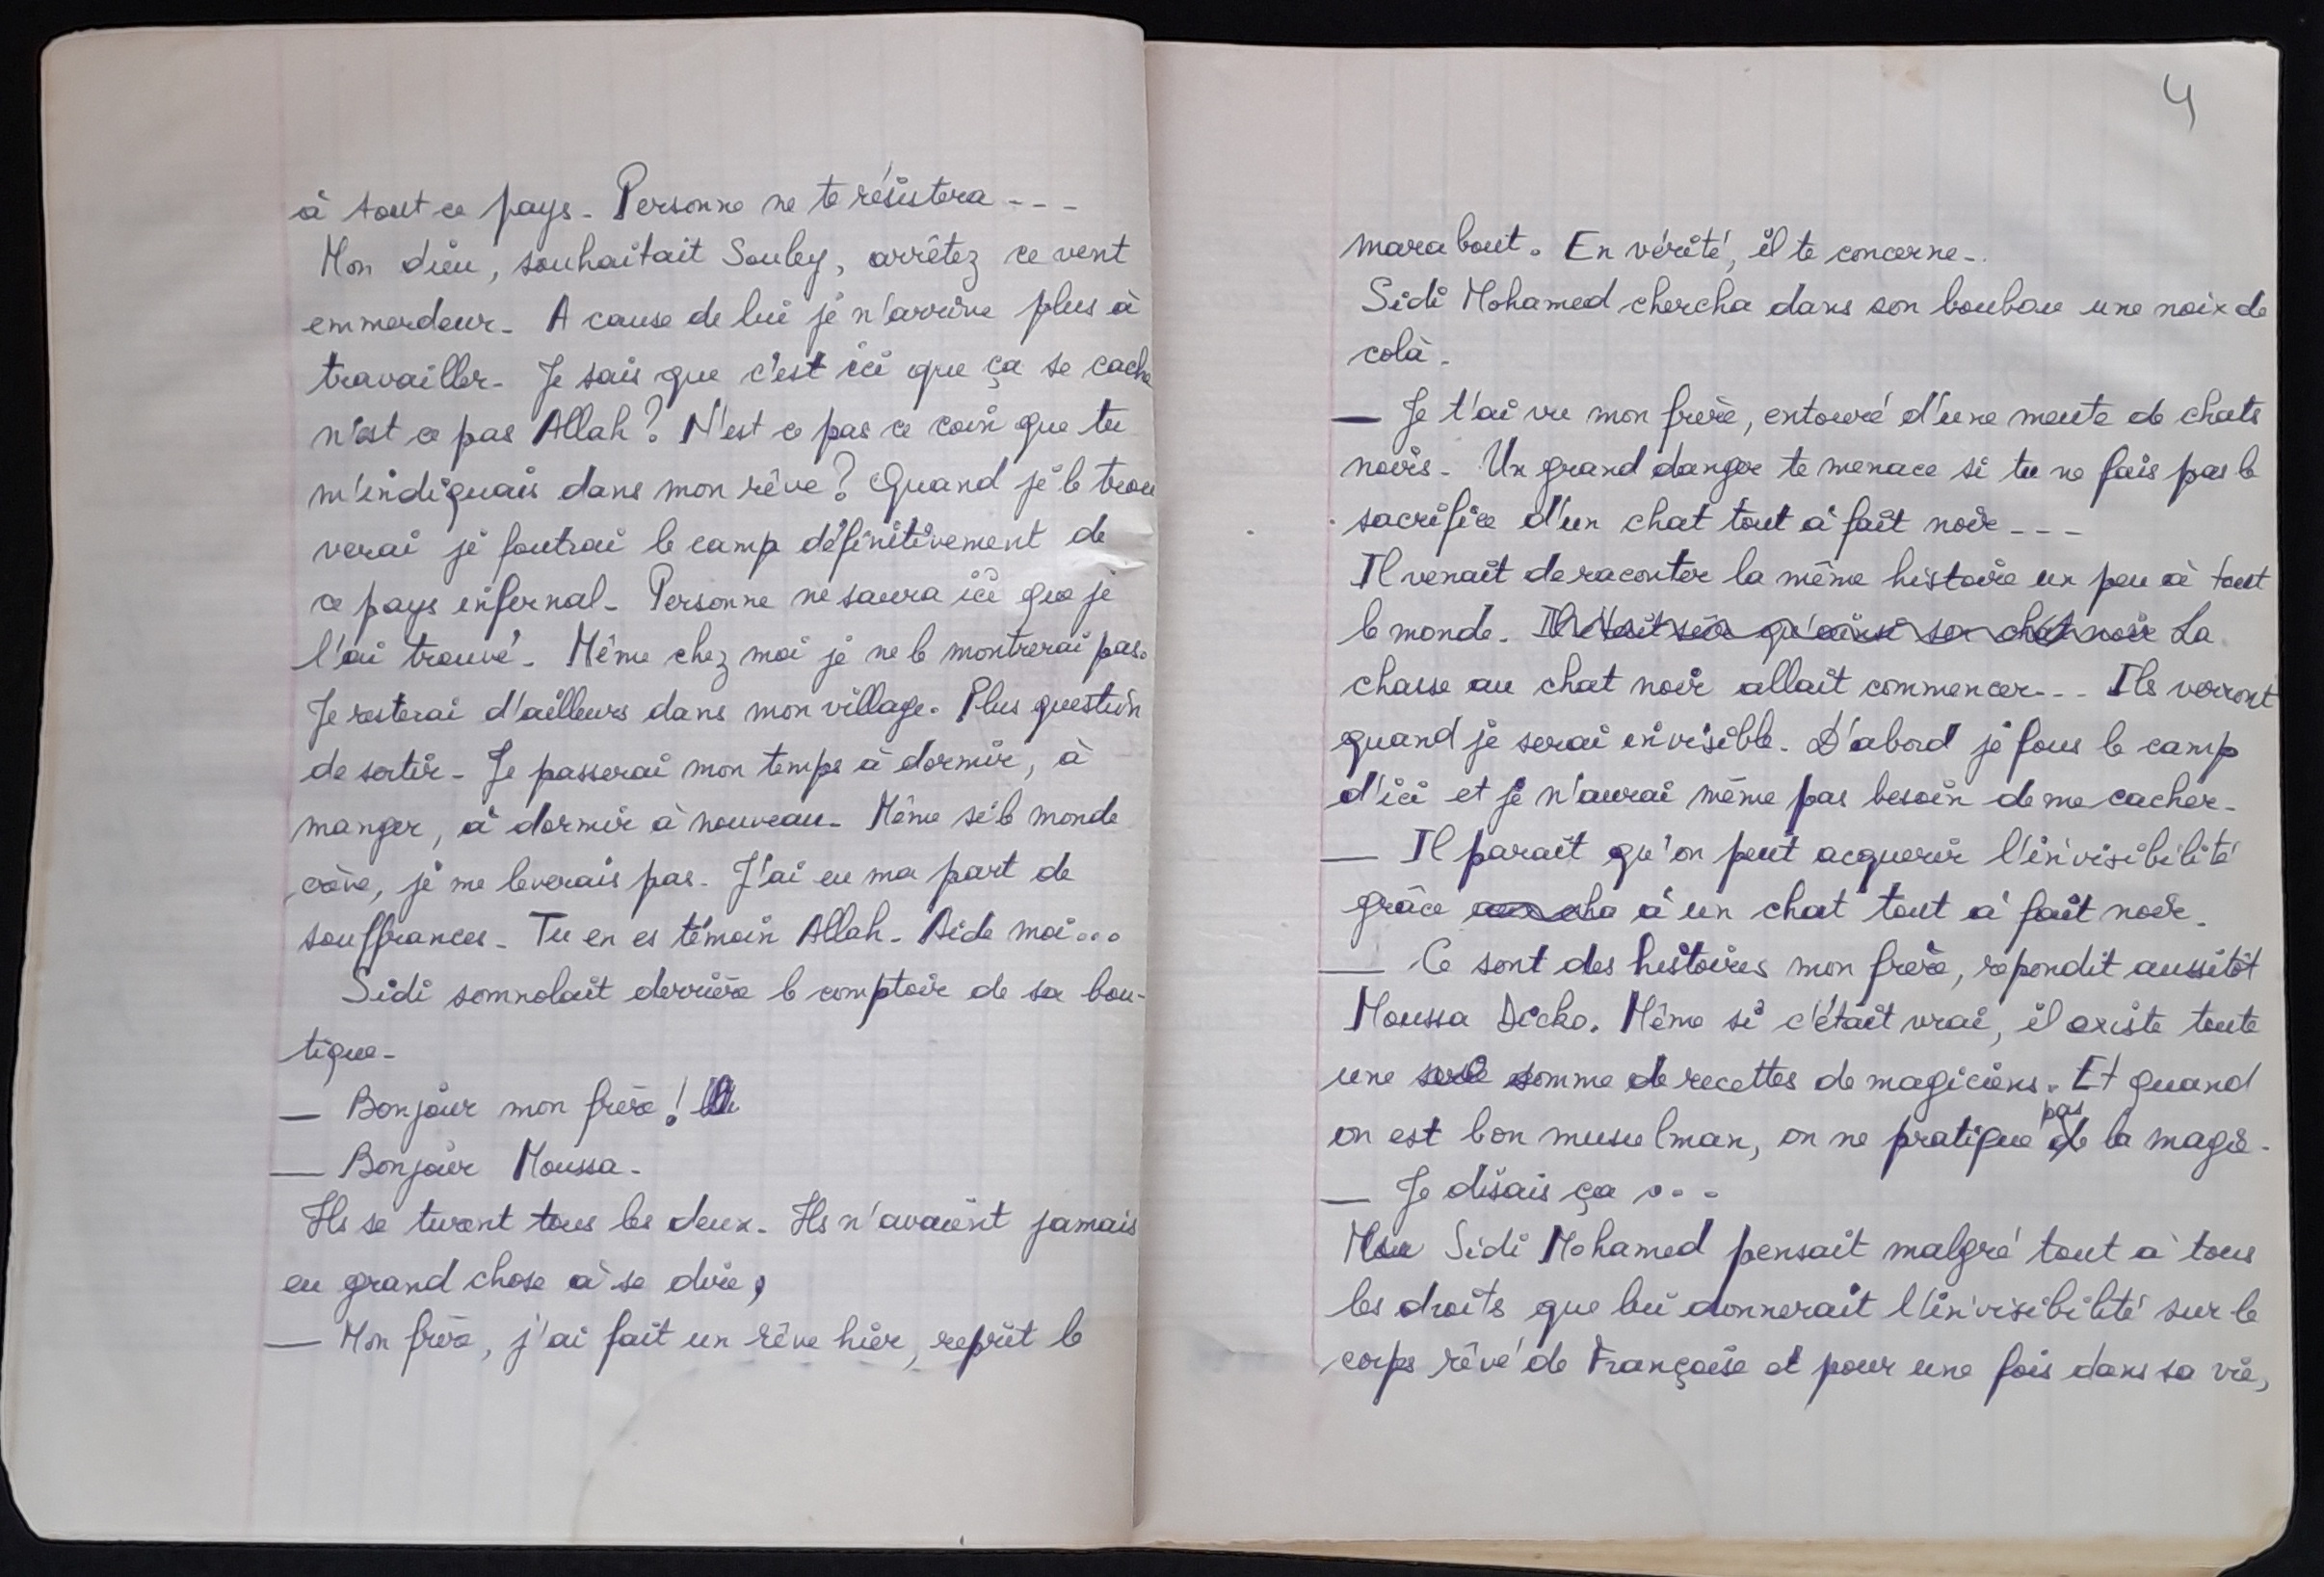 à tout ce pays. Personne ne te résistera - - -
Mon dieu, souhaitait Souley, arrêtez ce vent
emmerdeur. A cause de lui je n'arrive plus à
travailler. Je sais que c'est ici que ça se cache
n'est ce pas Allah ? N'est ce pas ce coin que tu
m'indiquais dans mon rêve ? Quand je le trou
verai je foutrai le camp définitivement de
ce pays infernal. Personne ne saura ici que je
l'ai trouvé. Même chez moi je ne le montrerai pas.
Je resterai d'ailleurs dans mon village. Plus question
de sortir. Je passerai mon temps à dormir, à
manger, à dormir à nouveau. Même si le monde
crève, je me leverais pas. J'ai eu ma part de
souffrances. Tu en es témoin Allah. Aide moi...
Sidi somnolait derrière le comptoir de sa bou-
tique.
— Bonjour mon frère !
— Bonjour Moussa.
Ils se turent tous les deux. Ils n'avaient jamais
eu grand chose à se dire,
— Mon frère, j'ai fait un rêve hier, reprit le
4
marabout. En vérité, il te concerne..
Sidi Mohamed chercha dans son boubou une noix de
cola.
— Je t'ai vu mon frère, entouré d'une meute de chats
noirs. Un grand danger te menace si tu ne fais pas le
sacrifice d'un chat tout à fait noir - - -
Il venait de raconter la même histoire un peu à tout
le monde. Il était sûr qu'ainsi son chat noir La
chasse au chat noir allait commencer - - - Ils verront
quand je serai invisible. D'abord je fous le camp
d'ici et je n'aurai même pas besoin de me cacher.
— Il parait qu'on peut acquerir l'invisibilité
grâce au cha à un chat tout à fait noir.
— Ce sont des histoires mon frère, repondit aussitôt
Moussa Dicko. Même si c'était vrai, il existe toute
une somme de recettes de magiciens. Et quand
on est bon musulman, on ne pratique pas de la magie.
— Je disais ça ...
Mou Sidi Mohamed pensait malgré tout à tous
les droits que lui donnerait l'invisibilité sur le
corps rêvé de Françoise et pour une fois dans sa vie,